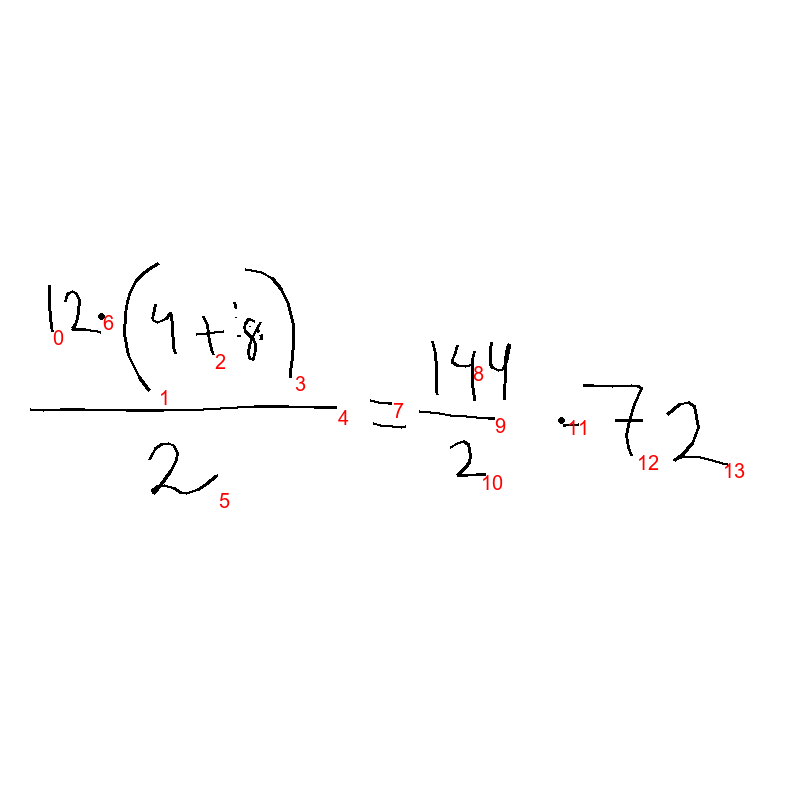 12·(4+8)/2 = 144/2 · 72
0 6 1 2 3 4 5 7 8 9 10 11 12 13